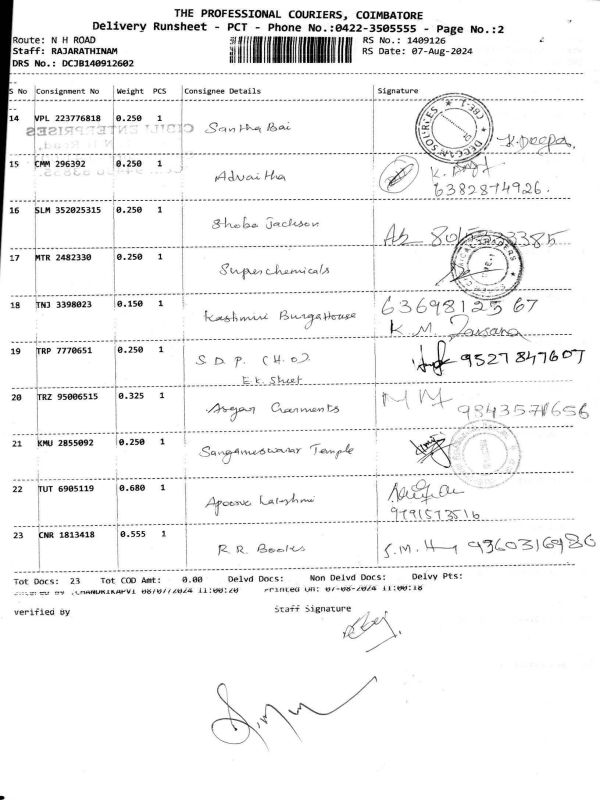 THE PROFESSIONAL COURIERS, COIMBATORE
Delivery Runsheet - PCT - Phone No.:0422-3505555 - Page No.:2
Route: N H ROAD RS No.: 1409126
Staff: RAJARATHINAM RS Date: 07-Aug-2024
DRS No.: DCJB140912602
S No Consignment No Weight PCS Consignee Details Signature
14 VPL 223776818 0.250 1 Santha Bai K. Deepa
15 CMM 296392 0.250 1 Advaitha
6382874926.
16 SLM 352025315 0.250 1 Shoba Jackson
17 MTR 2482330 0.250 1 Superchemicals
18 TNJ 3398023 0.150 1 Kashmiri Burga House 6369812567
K. M.
19 TRP 7770651 0.250 1 S. D. P. (H.O). 9527847607
E.K. Street
20 TRZ 95006515 0.325 1 Asgar Garments
21 KMU 2855092 0.250 1 Sangameswarar Temple
22 TUT 6905119 0.680 1 Apoorva Lakshmi
9791573516
23 CNR 1813418 0.555 1 R.R. Books 9360316980
Tot Docs: 23 Tot COD Amt: 0.00 Delvd Docs: Non Delvd Docs: Delvy Pts:
Entered By :CHANDRIKAPVI 08/07/2024 11:00:20 Printed On: 07-08-2024 11:00:18
Verified By Staff Signature